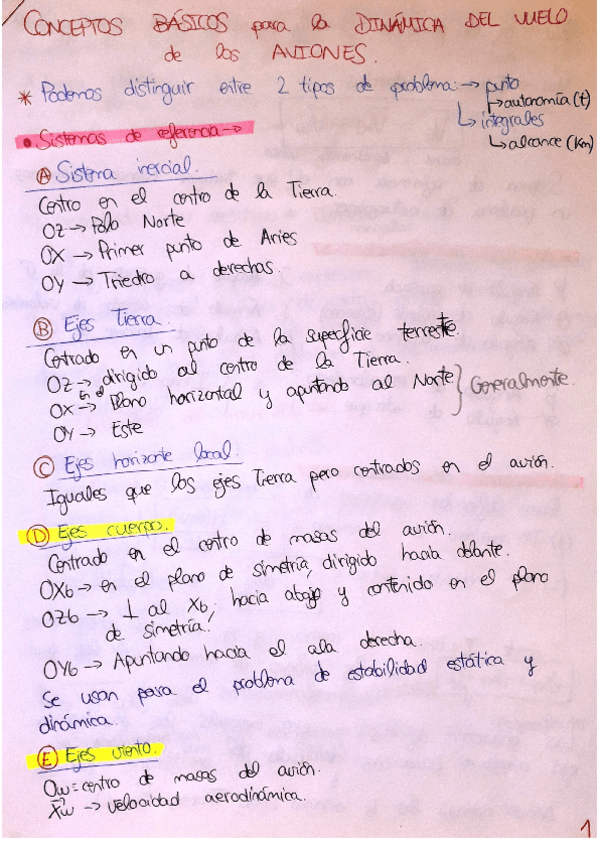 CONCEPTOS BÁSICOS para la DINÁMICA DEL VUELO
de los AVIONES.
* Podemos distinguir entre 2 tipos de problema: → punto
↳ autonomía (t)
↳ integrales
↳ alcance (Km)
• Sistemas de referencia →
A Sistema inercial.
Centro en el centro de la Tierra.
OZ → Polo Norte
OX → Primer punto de Aries
OY → Triedro a derechas.
B Ejes Tierra.
Centrado en un punto de la superficie terrestre
OZ → dirigido al centro de la Tierra.
OX → En el Plano horizontal y apuntando al Norte } Generalmente.
OY → Este
C Ejes horizonte local.
Iguales que los ejes Tierra pero centrados en el avión.
D Ejes cuerpo.
Centrado en el centro de masas del avión.
OXb → en el plano de simetría, dirigido hacia delante.
OZb → ⊥ al Xb, hacia abajo y contenido en el plano
de simetría.
OYb → Apuntando hacia el ala derecha.
Se usan para el problema de estabilidad estática y
dinámica.
E Ejes viento.
Ow = centro de masas del avión.
Xw → velocidad aerodinámica.
1